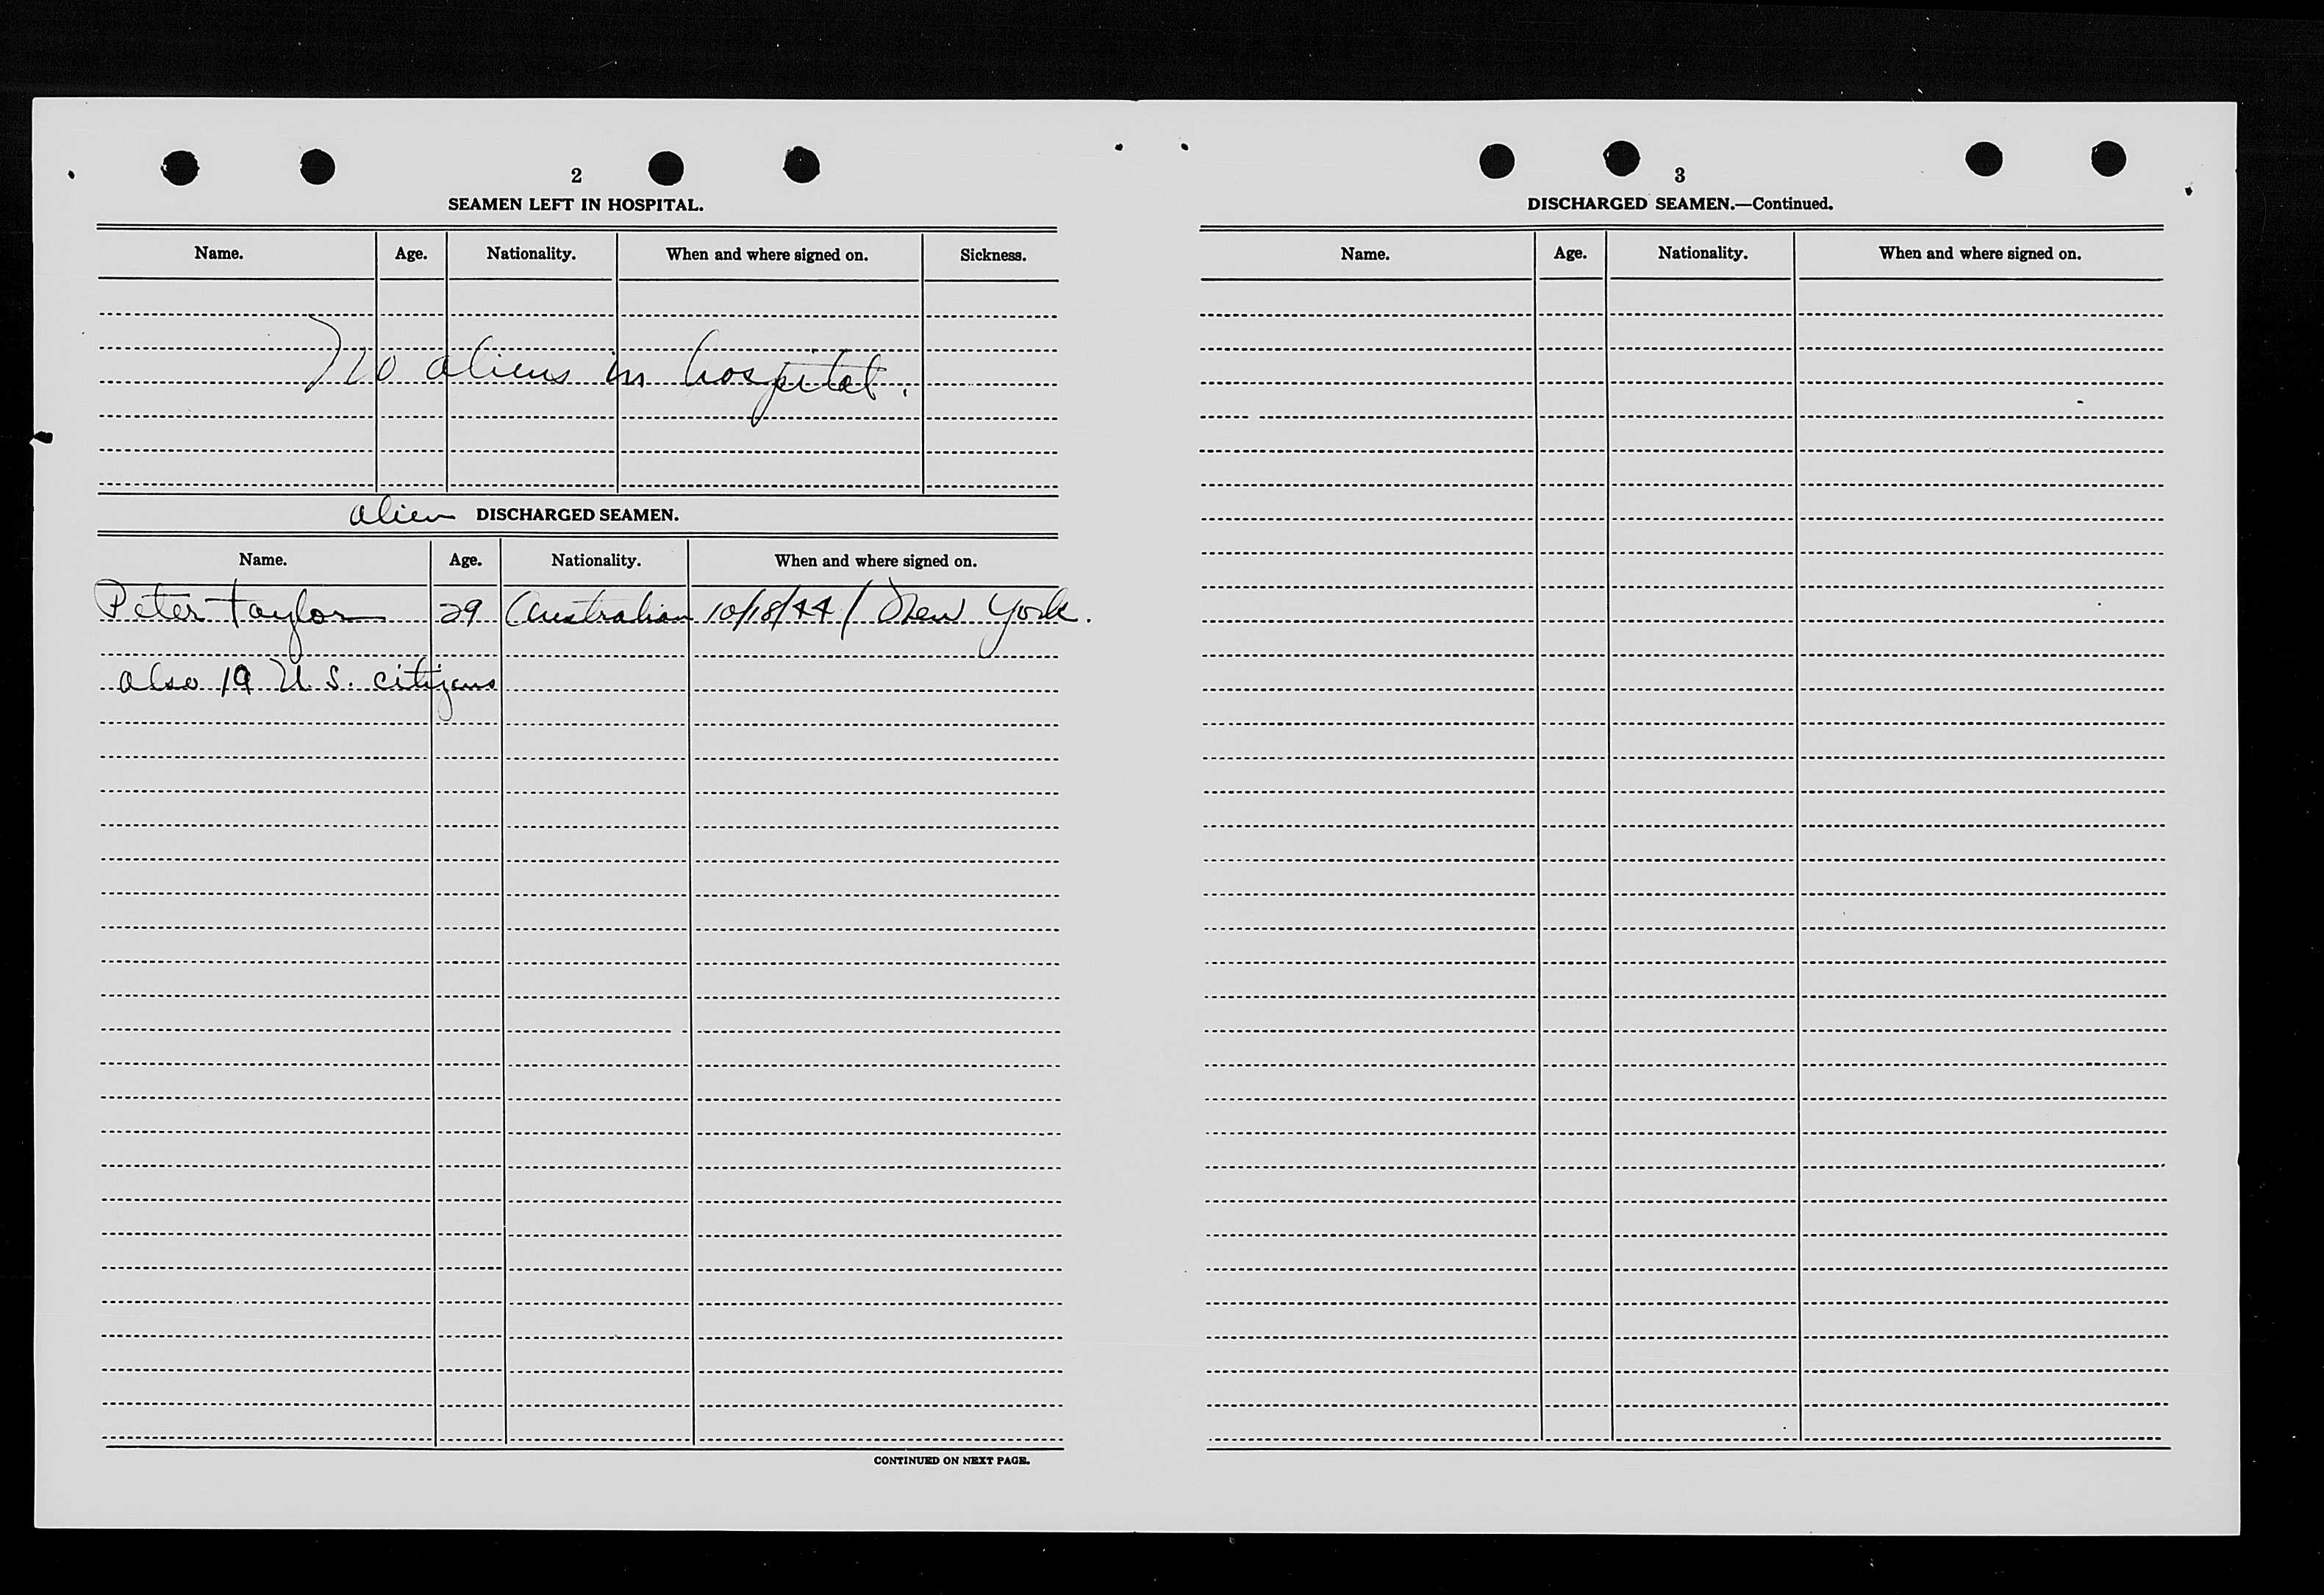 2
SEAMEN LEFT IN HOSPITAL.
Name. Age. Nationality. When and where signed on. Sickness.
No aliens in hospital.
alien DISCHARGED SEAMEN.
Name. Age. Nationality. When and where signed on.
Peter Taylor 29 Australian 10/18/44 / New York.
also 19 U.S. citizens
CONTINUED ON NEXT PAGE.
3
DISCHARGED SEAMEN.—Continued.
Name. Age. Nationality. When and where signed on.